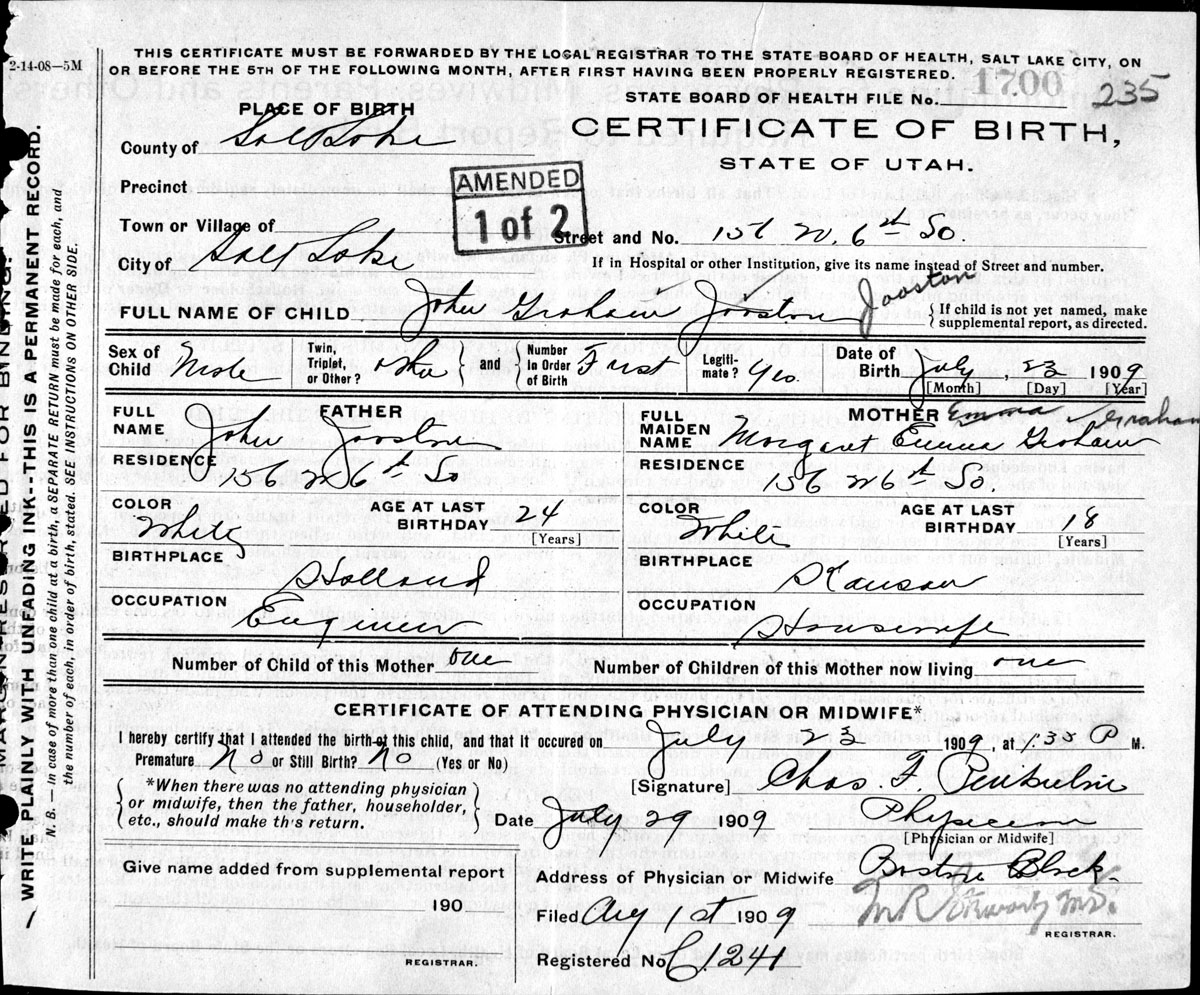 2-14-08—5M
THIS CERTIFICATE MUST BE FORWARDED BY THE LOCAL REGISTRAR TO THE STATE BOARD OF HEALTH, SALT LAKE CITY, ON
OR BEFORE THE 5TH OF THE FOLLOWING MONTH, AFTER FIRST HAVING BEEN PROPERLY REGISTERED.
STATE BOARD OF HEALTH FILE No. 1700 235
PLACE OF BIRTH
CERTIFICATE OF BIRTH,
STATE OF UTAH.
County of Salt Lake
AMENDED
1 of 2
Precinct
Town or Village of
Street and No. 156 W. 6th So.
City of Salt Lake
If in Hospital or other Institution, give its name instead of Street and number.
FULL NAME OF CHILD John Graham Jooston Jooston
{ If child is not yet named, make
supplemental report, as directed.
Sex of Child Male
Twin, Triplet, or Other?
and
Number In Order of Birth First
Legiti-mate? Yes.
Date of Birth July, 23 1909
[Month] [Day] [Year]
FATHER
FULL NAME John Jooston
RESIDENCE 156 W 6th So
COLOR White
AGE AT LAST BIRTHDAY 24 [Years]
BIRTHPLACE Holland
OCCUPATION Engineer
MOTHER Emma Graham
FULL MAIDEN NAME Margaret Emma Graham
RESIDENCE 156 W 6th So.
COLOR White
AGE AT LAST BIRTHDAY 18 [Years]
BIRTHPLACE Kansas
OCCUPATION Housewife
Number of Child of this Mother one
Number of Children of this Mother now living one
CERTIFICATE OF ATTENDING PHYSICIAN OR MIDWIFE*
I hereby certify that I attended the birth of this child, and that it occured on July 23 1909, at 1.35 P M.
Premature No or Still Birth? No (Yes or No)
[Signature] Chas. F.
{ *When there was no attending physician
or midwife, then the father, householder,
etc., should make th's return. }
Date July 29 1909
Physician
[Physician or Midwife]
Give name added from supplemental report
190
REGISTRAR.
Address of Physician or Midwife Boston Block
Filed Aug 1st 1909
REGISTRAR.
Registered No. C.1241
MARGIN RESERVED FOR BINDING.
WRITE PLAINLY WITH UNFADING INK--THIS IS A PERMANENT RECORD.
N. B.—In case of more than one child at a birth, a SEPARATE RETURN must be made for each, and
the number of each, in order of birth, stated. SEE INSTRUCTIONS ON OTHER SIDE.